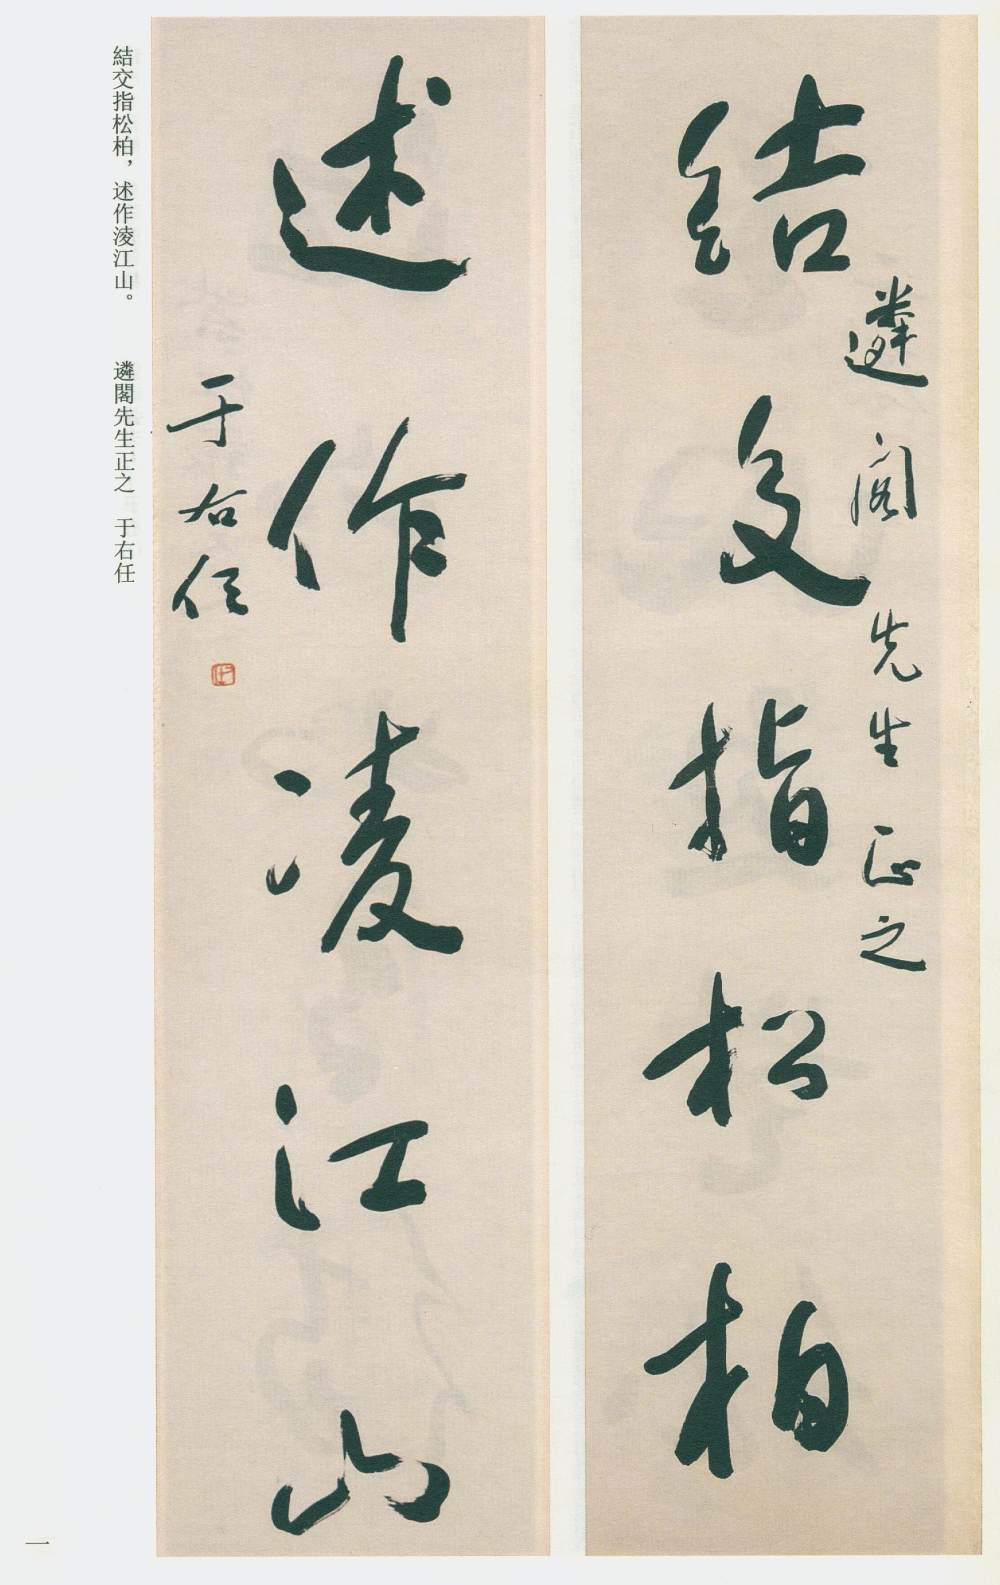 結交指松柏
遴閣先生正之
述作凌江山
于右任
結交指松柏，述作淩江山。　遴閣先生正之　于右任
一